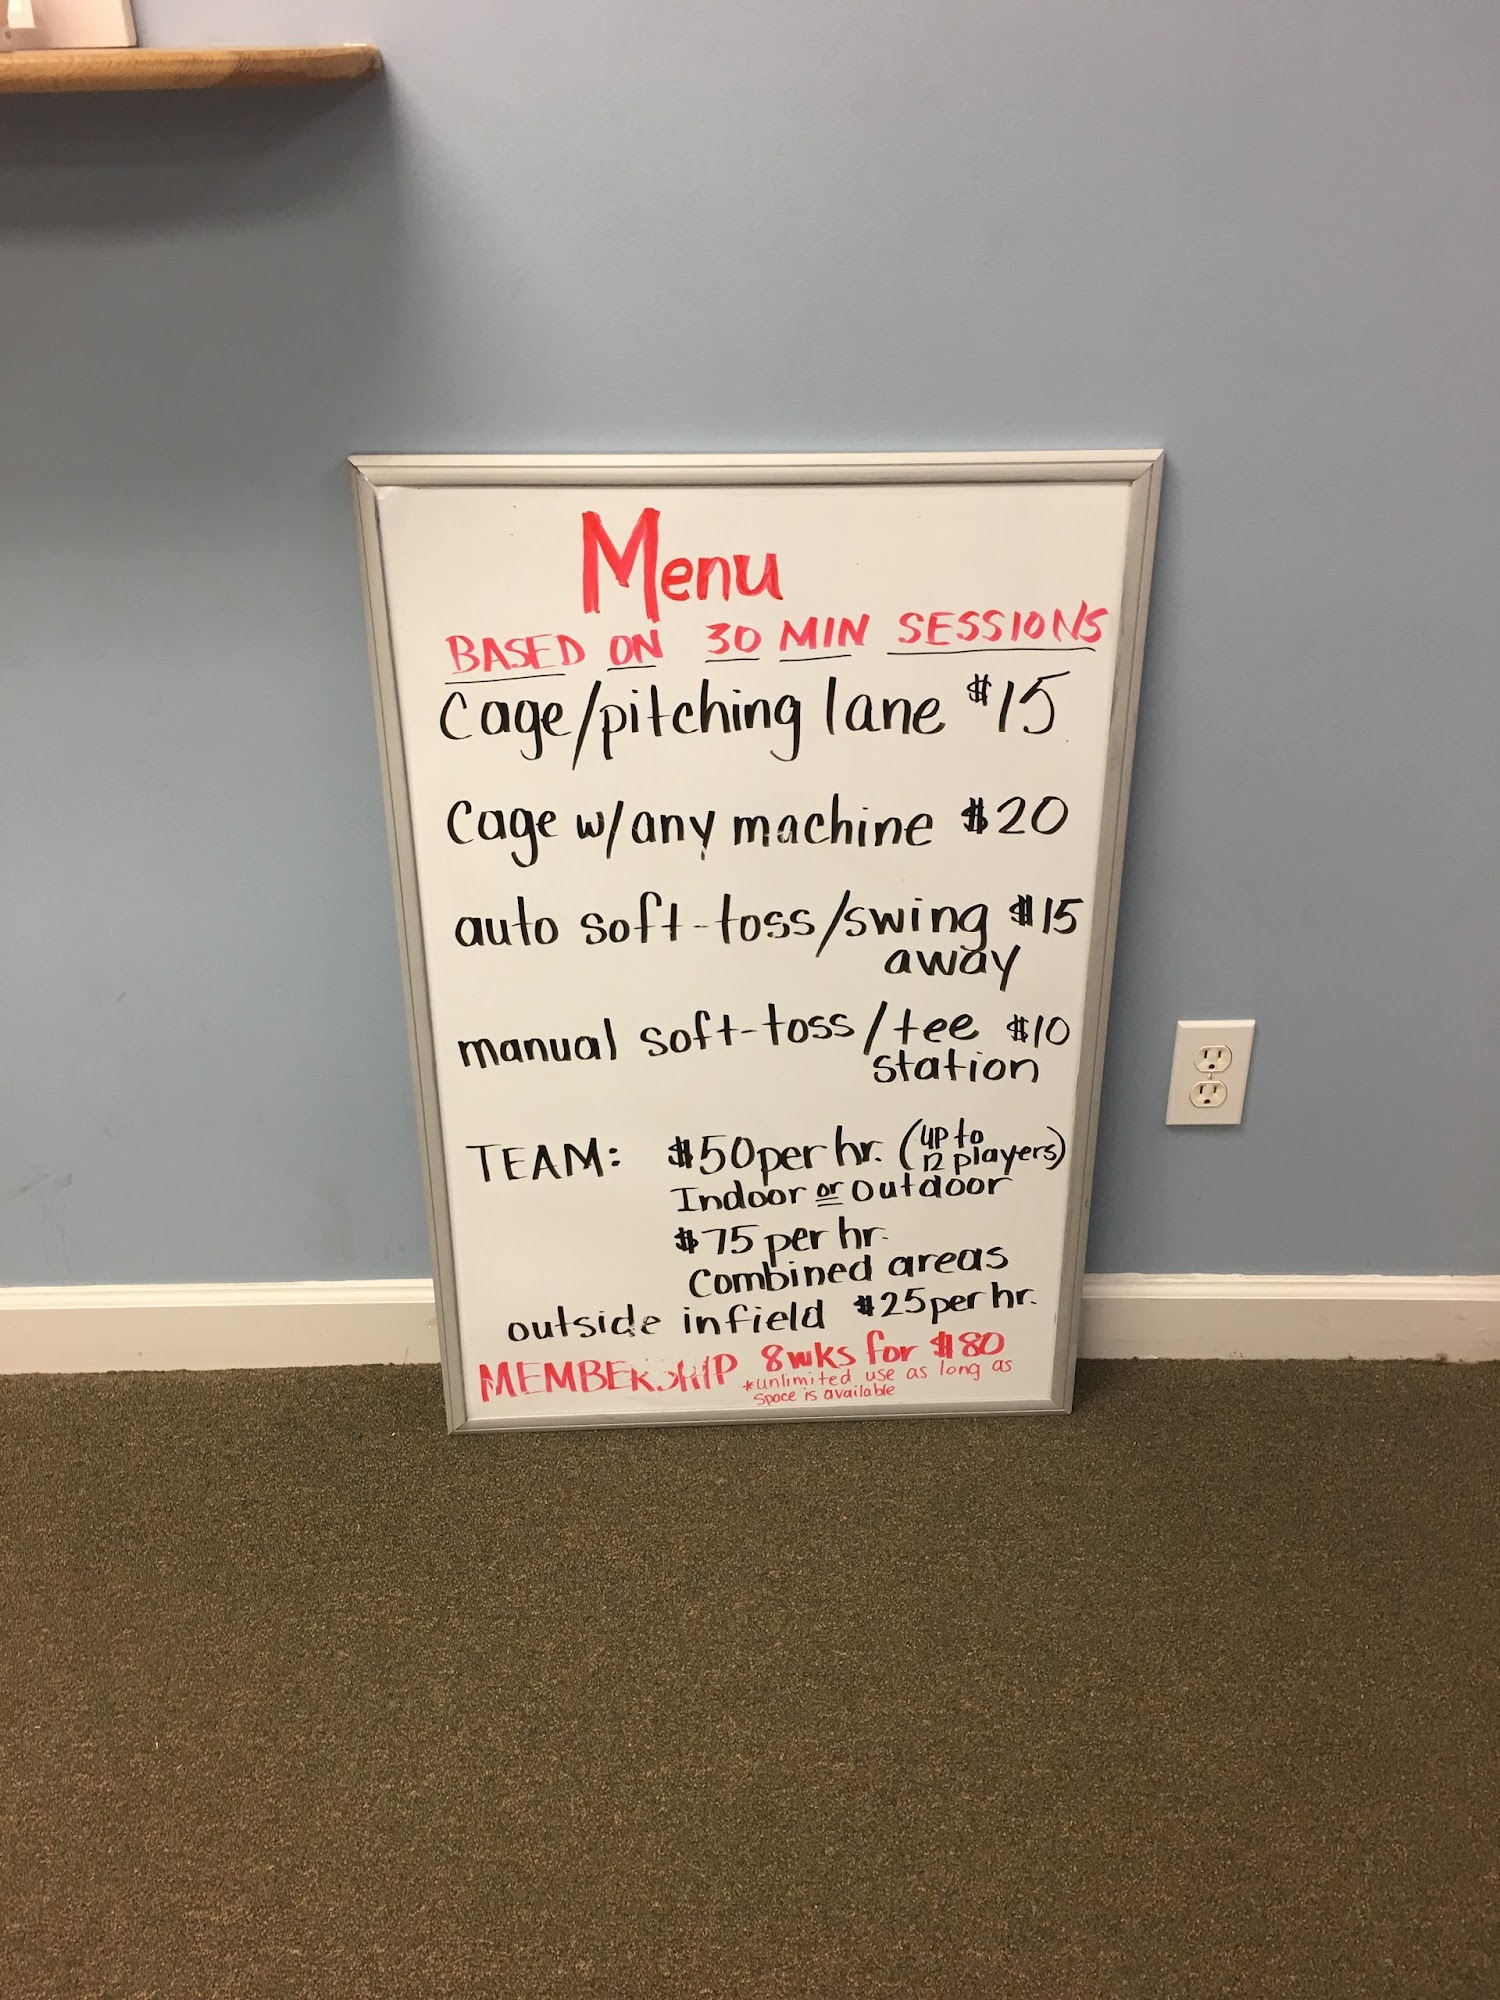 Menu
BASED ON 30 MIN SESSIONS
Cage/pitching lane $15
Cage w/any machine $20
auto soft-toss/swing $15
away
manual soft-toss/tee $10
station
TEAM: $50 per hr. (up to
12 players)
Indoor or outdoor
$75 per hr.
Combined areas
outside infield $25 per hr.
MEMBERSHIP 8wks for $80
*unlimited use as long as
space is available